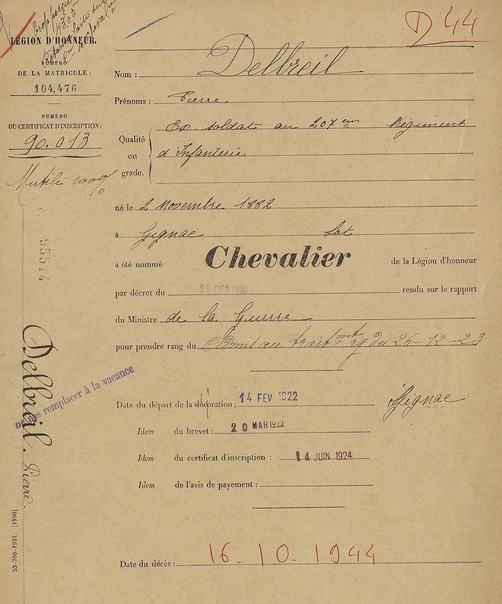 D 44
LÉGION D'HONNEUR.
NUMÉRO
DE LA MATRICULE :
104,476
NUMÉRO
DU CERTIFICAT D'INSCRIPTION :
90.013
Mutilé 100%
95514
Delbreil. Pierre.
ne pas remplacer à la vacance
Nom : Delbreil
Prénoms : Pierre
Qualité ou grade. Ex soldat au 207em Régiment
d'Infanterie
né le 2 Novembre 1882
à Gignac Lot
a été nommé Chevalier de la Légion d'honneur
par décret du 29 DEC 1920 rendu sur le rapport
du Ministre de la Guerre
pour prendre rang du Admis au traitmt du 24-12-23
Date du départ de la décoration : 14 FEV 1922 Gignac
Idem du brevet : 20 MAR 1922
Idem du certificat d'inscription : 14 JUIN 1924
Idem de l'avis de payement :
Date du décès : 16.10.1944